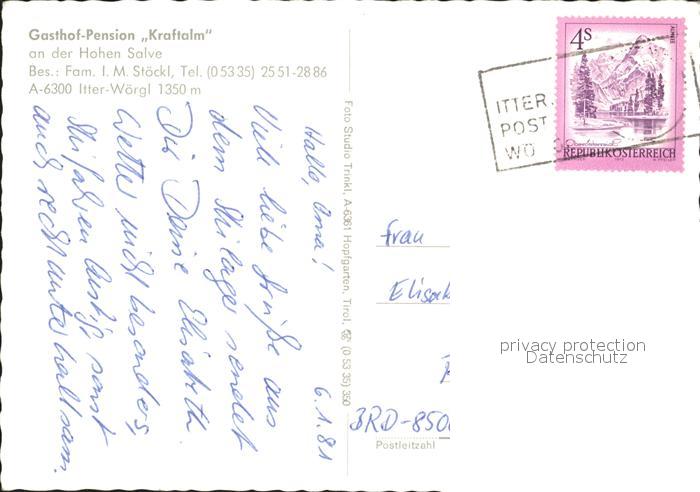 Gasthof-Pension „Kraftalm"
an der Hohen Salve
Bes.: Fam. I. M. Stöckl, Tel. (0 53 35) 25 51-28 86
A-6300 Itter-Wörgl 1350 m
6. 1. 81
Hallo, Oma!
Viele liebe Grüße aus
dem Skilager sendet
Dir Deine Elisabeth.
Wetter nicht besonders,
Skifahren lustig, sonst
auch recht unterhaltsam.
Foto Studio Trinkl, A-6361 Hopfgarten, Tirol, ☎ (0 53 35) 350
4S
ALMSEE
REPUBLIK ÖSTERREICH
ITTER,
POST
WÖ
Frau
BRD-850
Postleitzahl
privacy protection
Datenschutz